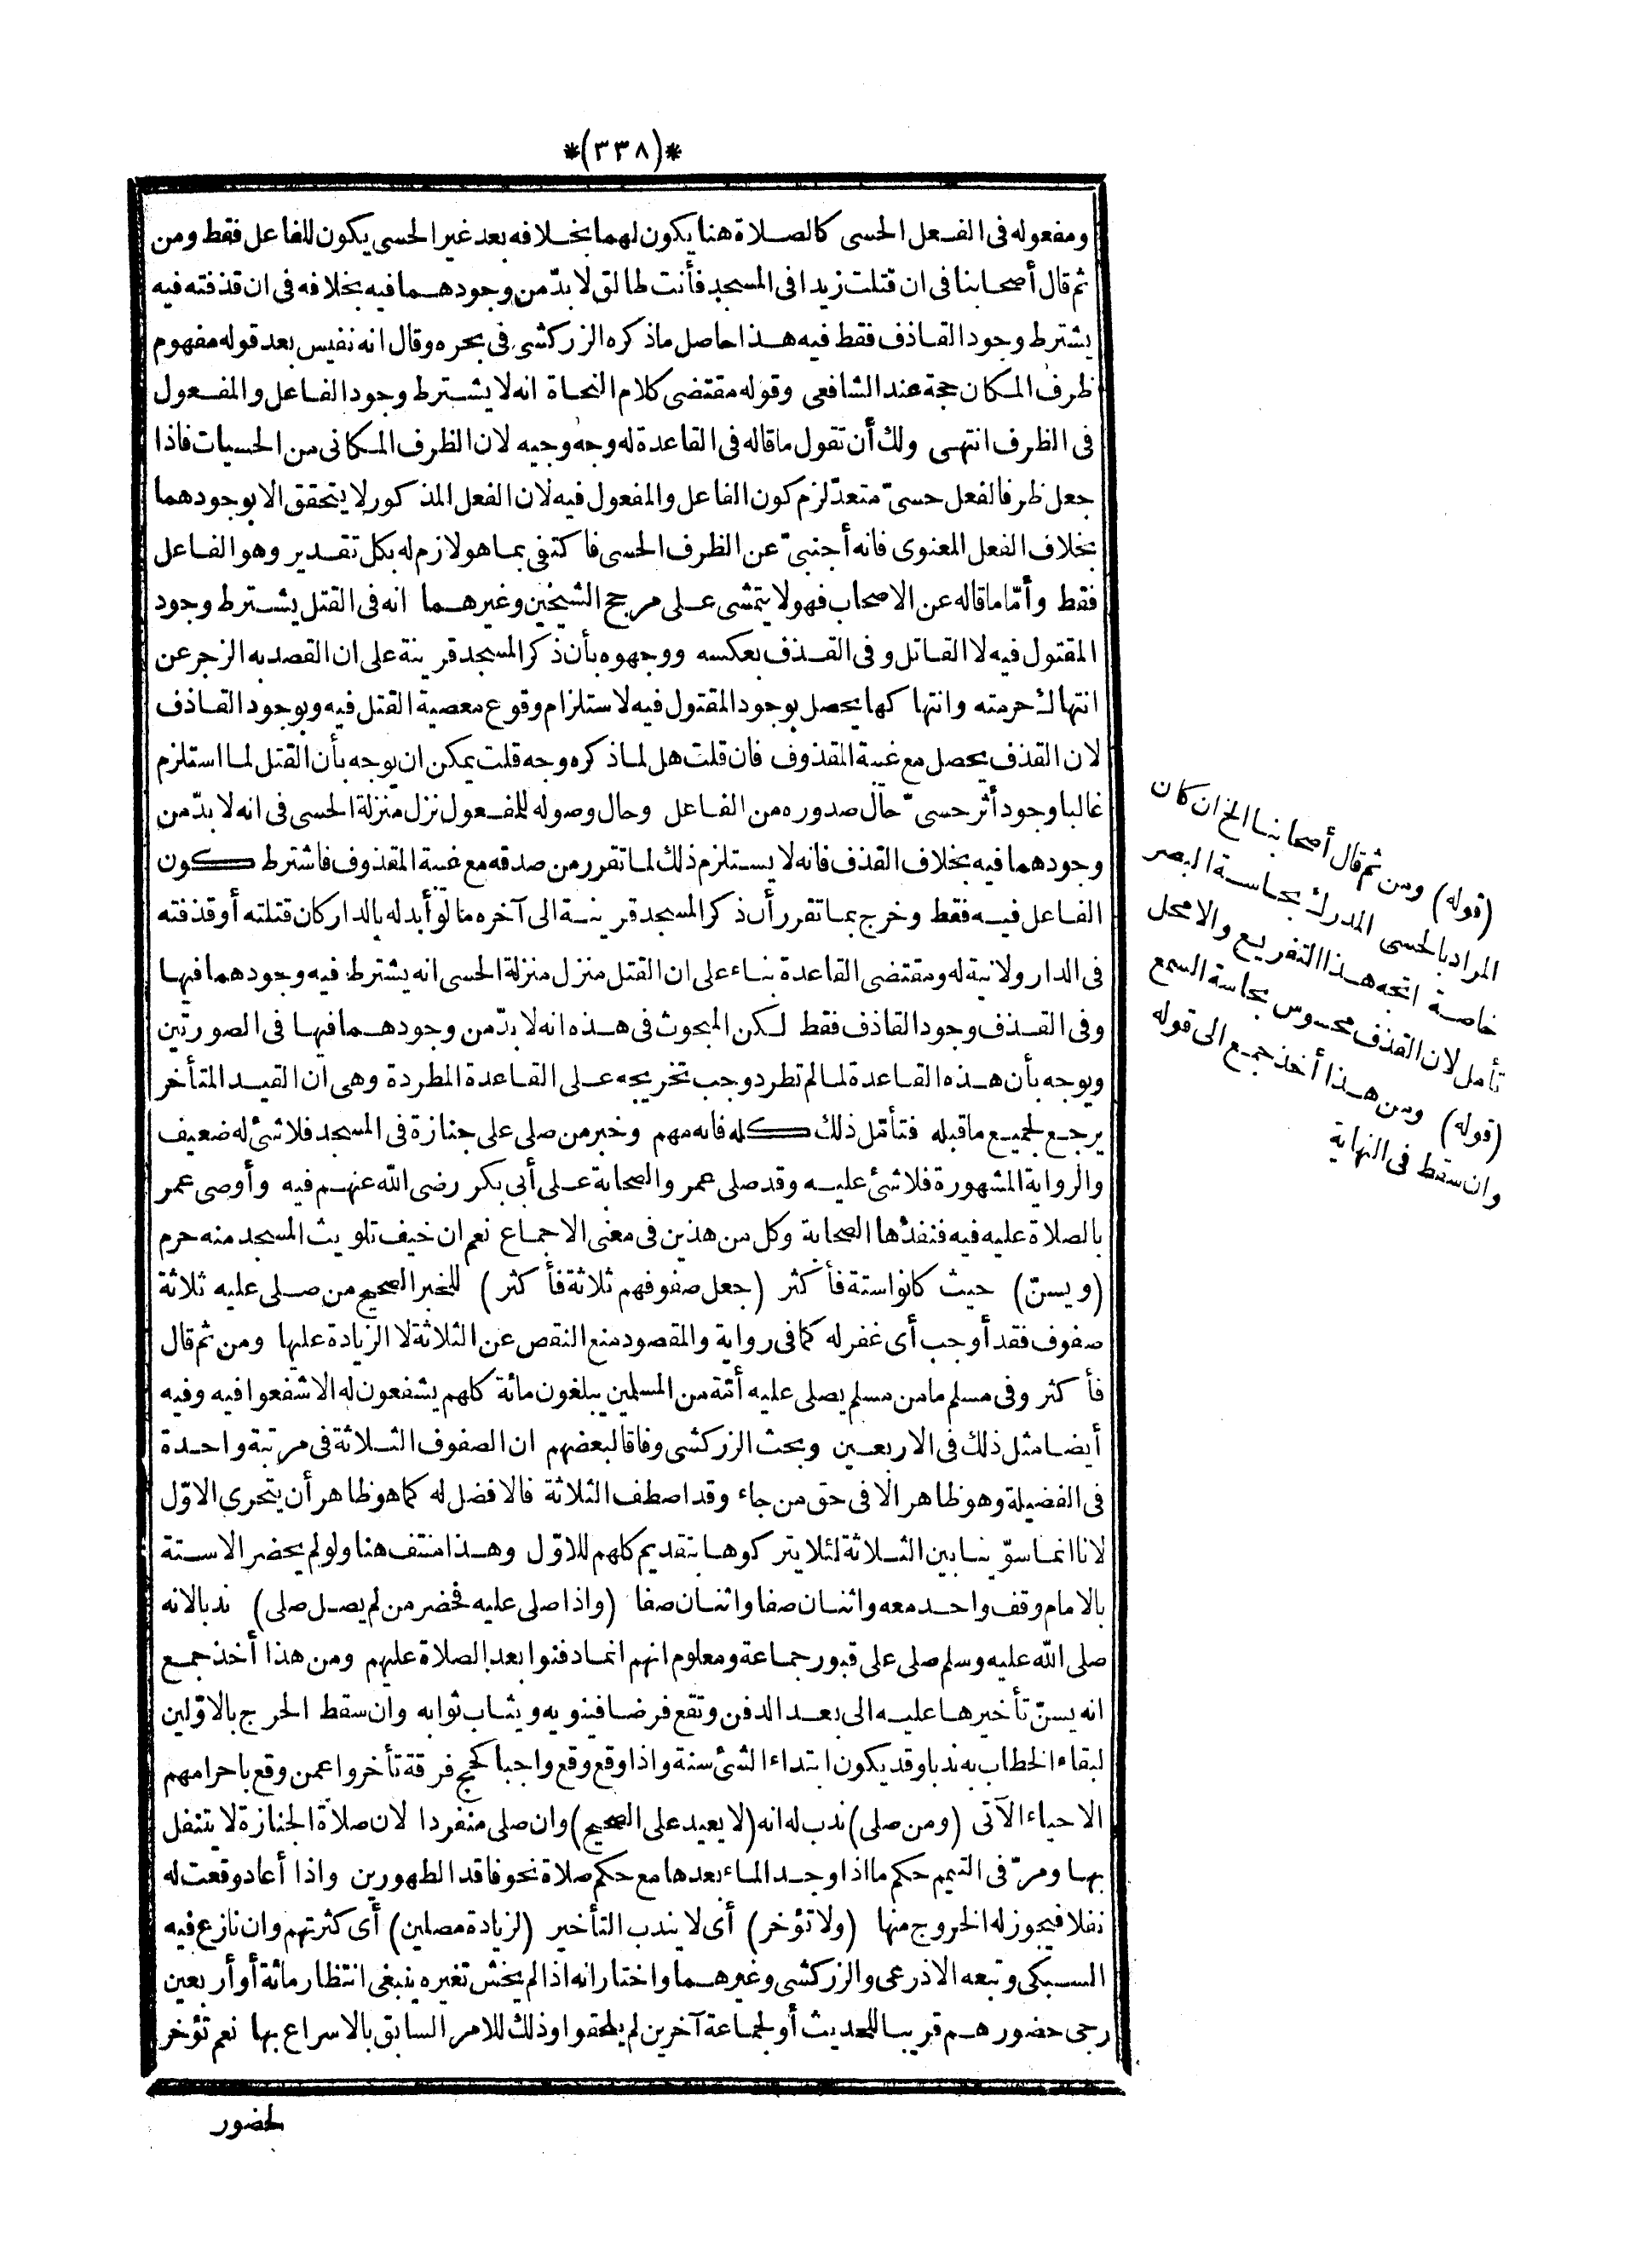 *(٣٣٨)*
ومفعوله فى الفعل الحسى كالصلاة هنا يكون لهما بخلافه بعد غير الحسى يكون للفاعل فقط ومن
ثم قال أصحابنا فى ان قتلت زيدا فى المسجد فأنت طالق لا بدّ من وجودهما فيه بخلافه فى ان قذفته فيه
يشترط وجود القاذف فقط فيه هذا حاصل ماذكره الزركشى فى بحره وقال انه نفيس بعد قوله مفهوم
ظرف المكان حجة عند الشافعى وقوله مقتضى كلام النحاة انه لا يشترط وجود الفاعل والمفعول
فى الظرف انتهى ولك أن تقول ماقاله فى القاعدة له وجه وجيه لان الظرف المكانى من الحسيات فاذا
جعل ظرفا لفعل حسىّ متعدّ لزم كون الفاعل والمفعول فيه لان الفعل المذكور لا يتحقق الا بوجودهما
بخلاف الفعل المعنوى فانه أجنبىّ عن الظرف الحسى فاكتفى بما هو لازم له بكل تقدير وهو الفاعل
فقط وأمّا ماقاله عن الاصحاب فهو لا يتمشى على مرجح الشيخين وغيرهما انه فى القتل يشترط وجود
المقتول فيه لا القاتل وفى القذف بعكسه ووجهوه بأن ذكر المسجد قرينة على ان القصد به الزجر عن
انتهاك حرمته وانتهاكها يحصل بوجود المقتول فيه لاستلزام وقوع معصية القتل فيه وبوجود القاذف
لان القذف يحصل مع غيبة المقذوف فان قلت هل لماذكره وجه قلت يمكن ان يوجه بأن القتل لما استلزم
غالبا وجود أثر حسىّ حال صدوره من الفاعل وحال وصوله للمفعول نزل منزلة الحسى فى انه لا بدّ من
وجودهما فيه بخلاف القذف فانه لا يستلزم ذلك لما تقرر من صدقه مع غيبة المقذوف فاشترط كون
الفاعل فيه فقط وخرج بما تقرر أن ذكر المسجد قرينة الى آخره ما لو أبدله بالدار كان قتلته أو قذفته
فى الدار ولا نية له ومقتضى القاعدة بناء على ان القتل منزل منزلة الحسى انه يشترط فيه وجودهما فيها
وفى القذف وجود القاذف فقط لكن المبحوث فى هذه انه لا بدّ من وجودهما فيها فى الصورتين
ويوجه بأن هذه القاعدة لما لم تطرد وجب تخريجه على القاعدة المطردة وهى ان القيد المتأخر
يرجع لجميع ماقبله فتأمّل ذلك كله فانه مهم وخبر من صلى على جنازة فى المسجد فلا شئ له ضعيف
والرواية المشهورة فلا شئ عليه وقد صلى عمر والصحابة على أبى بكر رضى الله عنهم فيه وأوصى عمر
بالصلاة عليه فيه فنفذها الصحابة وكل من هذين فى معنى الاجماع نعم ان خيف تلويث المسجد منه حرم
(ويسنّ) حيث كانوا ستة فأكثر (جعل صفوفهم ثلاثة فأكثر) للخبر الصحيح من صلى عليه ثلاثة
صفوف فقد أوجب أى غفر له كما فى رواية والمقصود منع النقص عن الثلاثة لا الزيادة عليها ومن ثم قال
فأكثر وفى مسلم مامن مسلم يصلى عليه أمّة من المسلمين يبلغون مائة كلهم يشفعون له الا شفعوا فيه وفيه
أيضا مثل ذلك فى الاربعين وبحث الزركشى وفاقا لبعضهم ان الصفوف الثلاثة فى مرتبة واحدة
فى الفضيلة وهو ظاهر الا فى حق من جاء وقد اصطف الثلاثة فالافضل له كما هو ظاهر أن يتحرى الاوّل
لانا انما سوّينا بين الثلاثة لئلا يتركوها بتقديم كلهم للاوّل وهذا منتف هنا ولو لم يحضر الا ستة
بالامام وقف واحد معه واثنان صفا واثنان صفا (واذا صلى عليه فحضر من لم يصل صلى) ندبا لانه
صلى الله عليه وسلم صلى على قبور جماعة ومعلوم انهم انما دفنوا بعد الصلاة عليهم ومن هذا أخذ جمع
انه يسنّ تأخيرها عليه الى بعد الدفن وتقع فرضا فينويه ويثاب ثوابه وان سقط الحرج بالاوّلين
لبقاء الخطاب به ندبا وقد يكون ابتداء الشئ سنة واذا وقع وقع واجبا كحج فرقة تأخروا عمن وقع باحرامهم
الاحياء الآتى (ومن صلى) ندب له انه (لا يعيد على الصحيح) وان صلى منفردا لان صلاة الجنازة لا يتنفل
بها ومرّ فى التيمم حكم ما اذا وجد الماء بعدها مع حكم صلاة نحو فاقد الطهورين واذا أعاد وقعت له
نفلا فيجوز له الخروج منها (ولا تؤخر) أى لا يندب التأخير (لزيادة مصلين) أى كثرتهم وان نازع فيه
السبكى وتبعه الاذرعى والزركشى وغيرهما واختار انه اذا لم يخش تغيره ينبغى انتظار مائة أو أربعين
رجى حضورهم قريبا للحديث أو لجماعة آخرين لم يلحقوا وذلك للامر السابق بالاسراع بها نعم تؤخر
لحضور
(قوله) ومن ثم قال أصحابنا الخ ان كان
المراد بالحسى المدرك بحاسة البصر
خاصة اتجه هذا التفريع والا محل
تأمل لان القذف محسوس بحاسة السمع
(قوله) ومن هذا أخذ جمع الى قوله
وان سقط فى النهاية